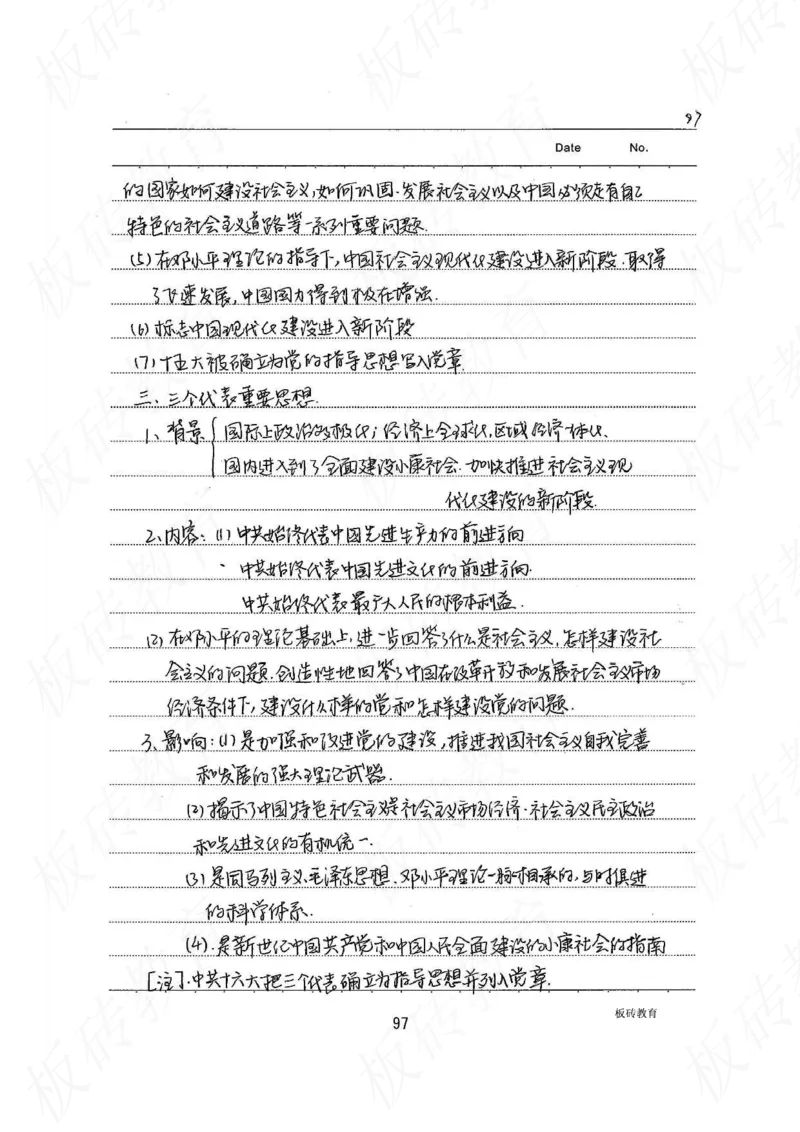 97
Date No.
的国家如何建设社会主义,如何巩固.发展社会主义以及中国必须走有自己
特色的社会主义道路等一系列重要问题.
(5)在邓小平理论的指导下,中国社会主义现代化建设进入新阶段.取得
了飞速发展,中国国力得到极在增强.
(6)标志中国现代化建设进入新阶段
(7)十五大被确立为党的指导思想写入党章.
三、三个代表重要思想.
1、背景{国际上政治多极化;经济上全球化,区域经济一体化.
国内进入到了全面建设小康社会.加快推进社会主义现
代化建设的新阶段.
2、内容:(1)中共始终代表中国先进生产力的前进方向
中共始终代表中国先进文化的前进方向.
中共始终代表最广大人民的根本利益.
(2)在邓小平的理论基础上,进一步回答了什么是社会主义,怎样建设社
会主义的问题.创造性地回答了中国在改革开放和发展社会主义市场
经济条件下,建设什么样的党和怎样建设党的问题.
3、影响:(1)是加强和改进党的建设,推进我国社会主义自我完善
和发展的强大理论武器.
(2)揭示了中国特色社会主义是社会主义市场经济.社会主义民主政治
和先进文化的有机统一.
(3)是同马列主义、毛泽东思想.邓小平理论一脉相承的,与时俱进
的科学体系.
(4).是新世纪中国共产党和中国人民全面建设的小康社会的指南
[注].中共十六大把三个代表确立为指导思想并列入党章.
97
板砖教育